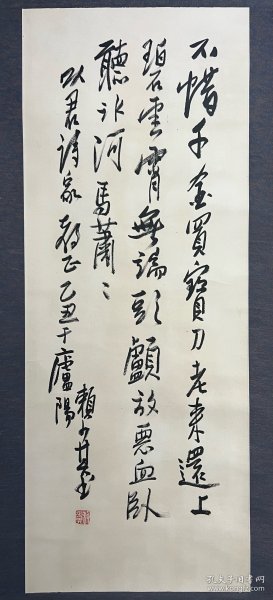 不惜千金買寶刀老來還上
碧雲霄無端頭顱放惡血臥
聽冰河馬蕭〻
以君詩家教正乙丑于廬陽
賴少其
孔夫子旧书网